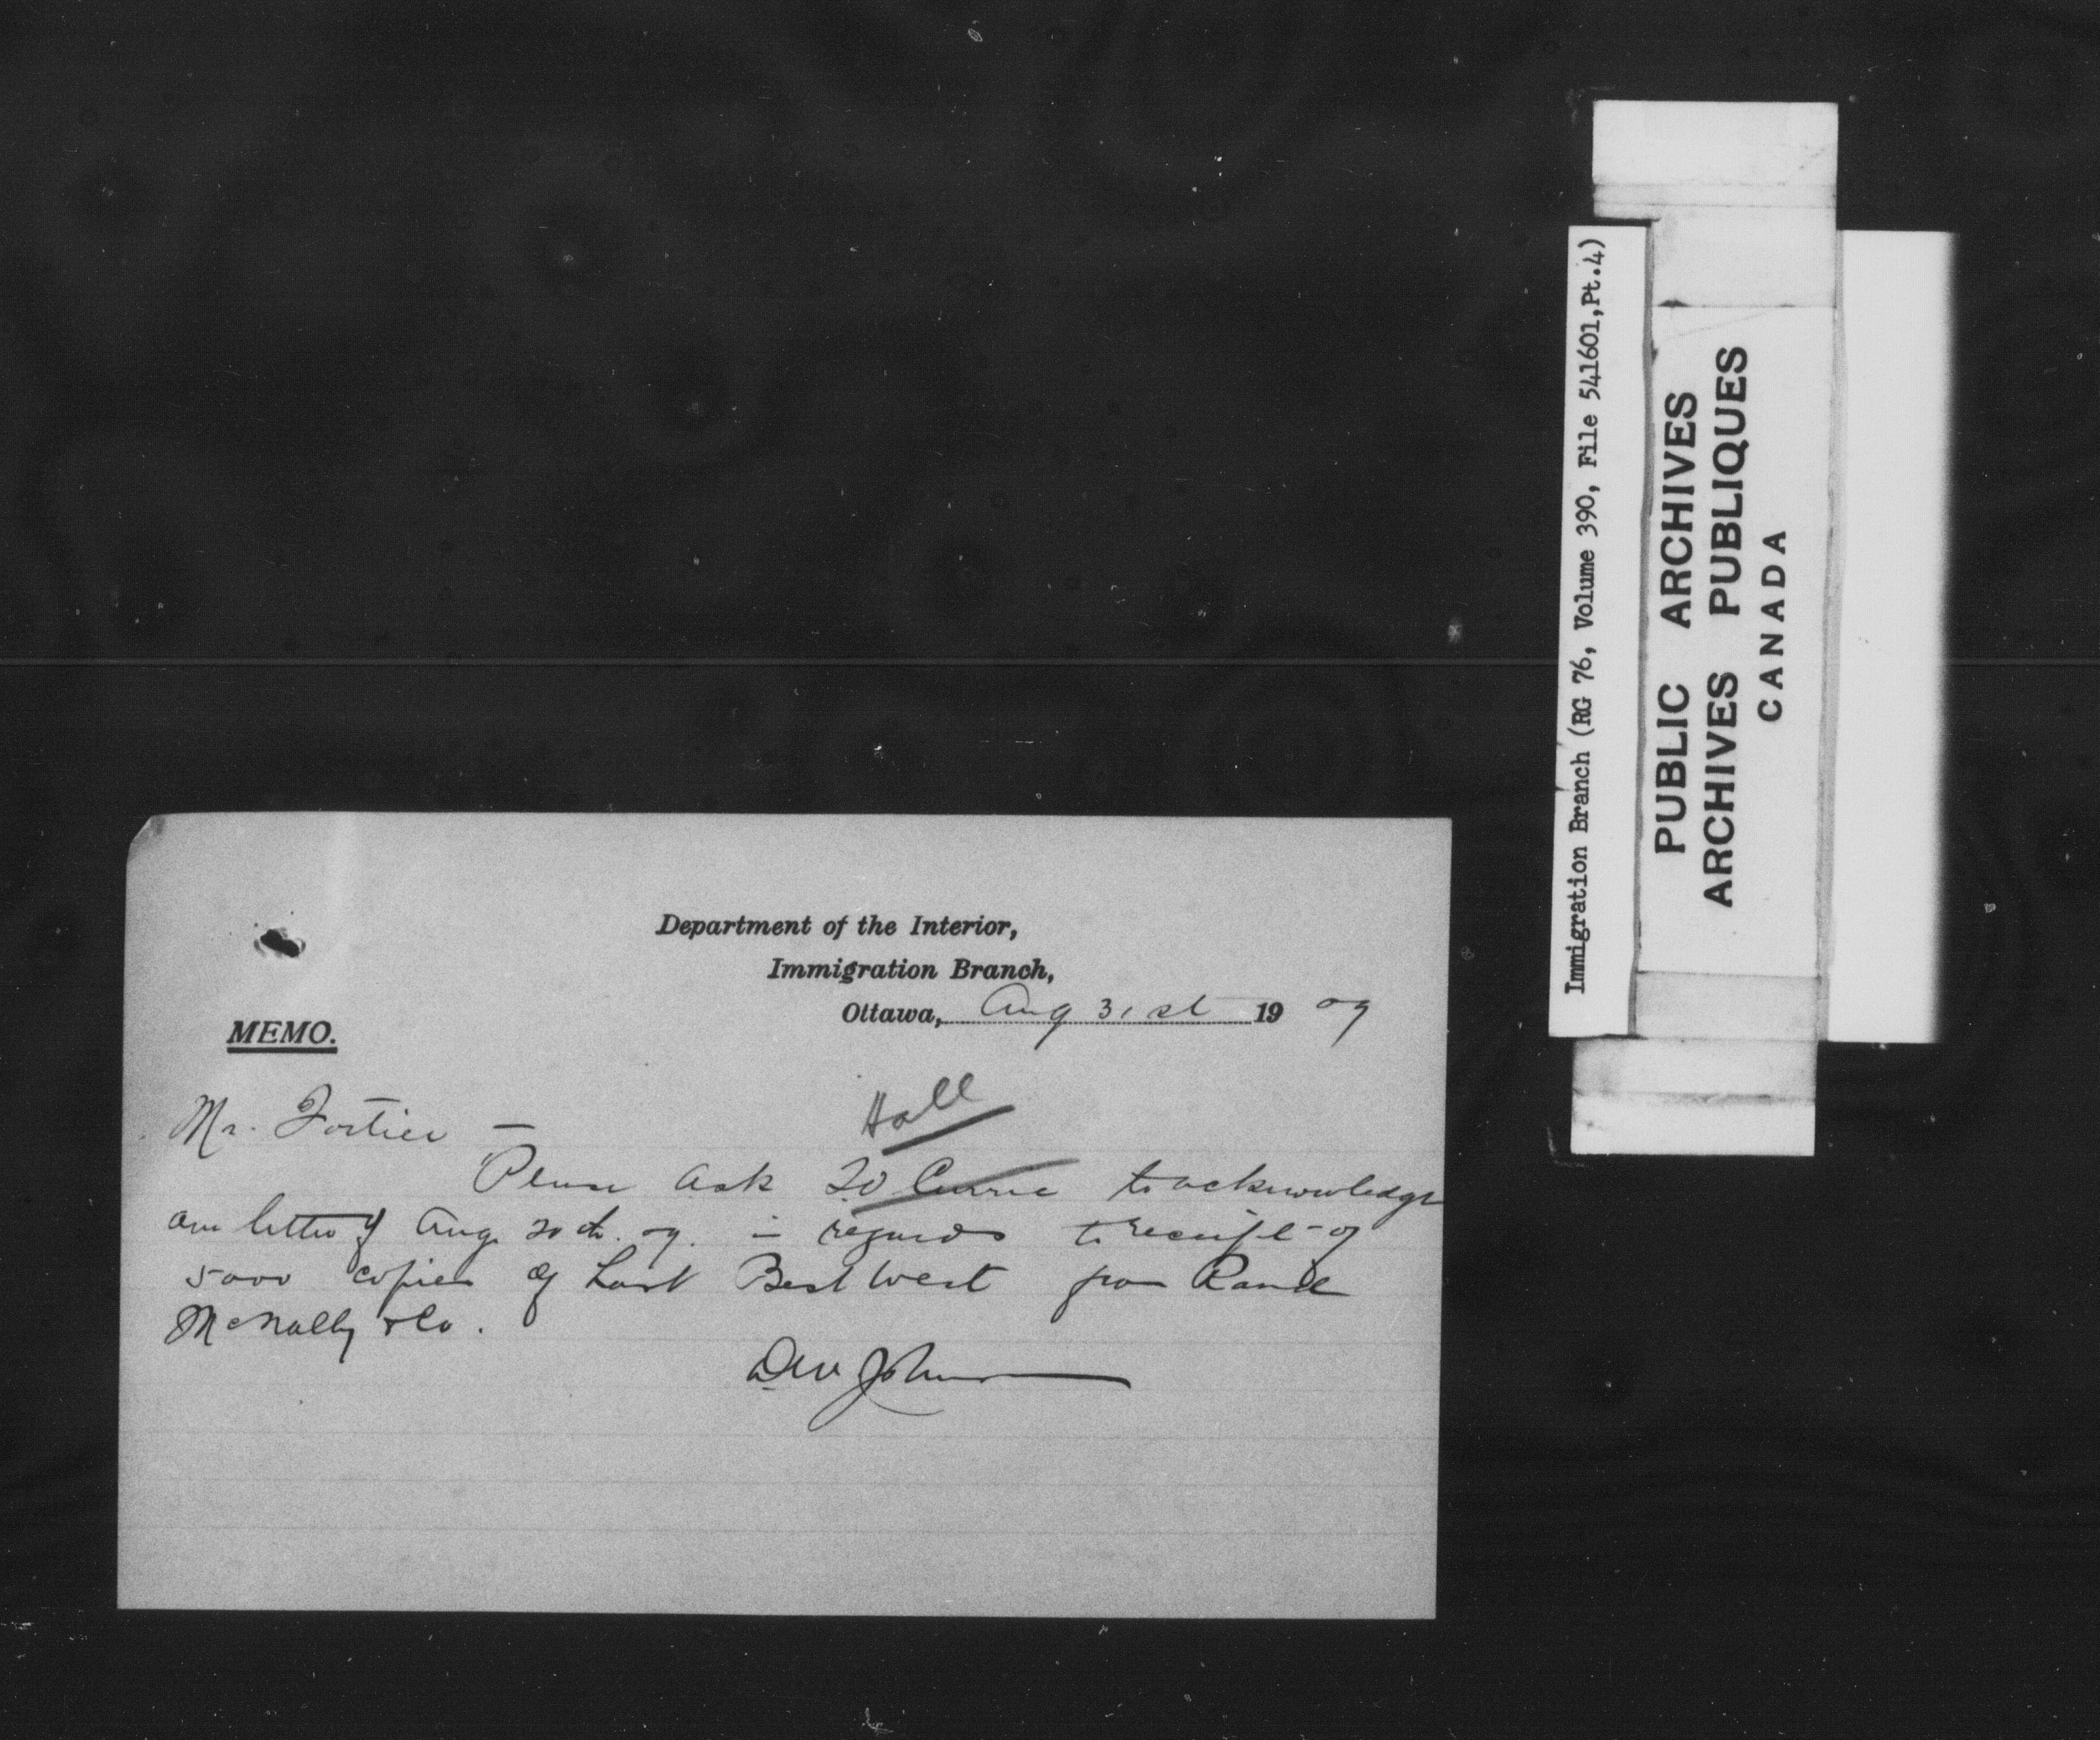 Department of the Interior,
Immigration Branch,
Ottawa, Aug 31st 1909
MEMO.
Hall
Mr. Fortier —
Please ask Currie to acknowledge
our letter of Aug 20th. 09. in regards to receipt of
5000 copies of Last Best West from Rand
McNally & Co.
Immigration Branch (RG 76, Volume 390, File 541601,Pt.4)
PUBLIC ARCHIVES
ARCHIVES PUBLIQUES
CANADA